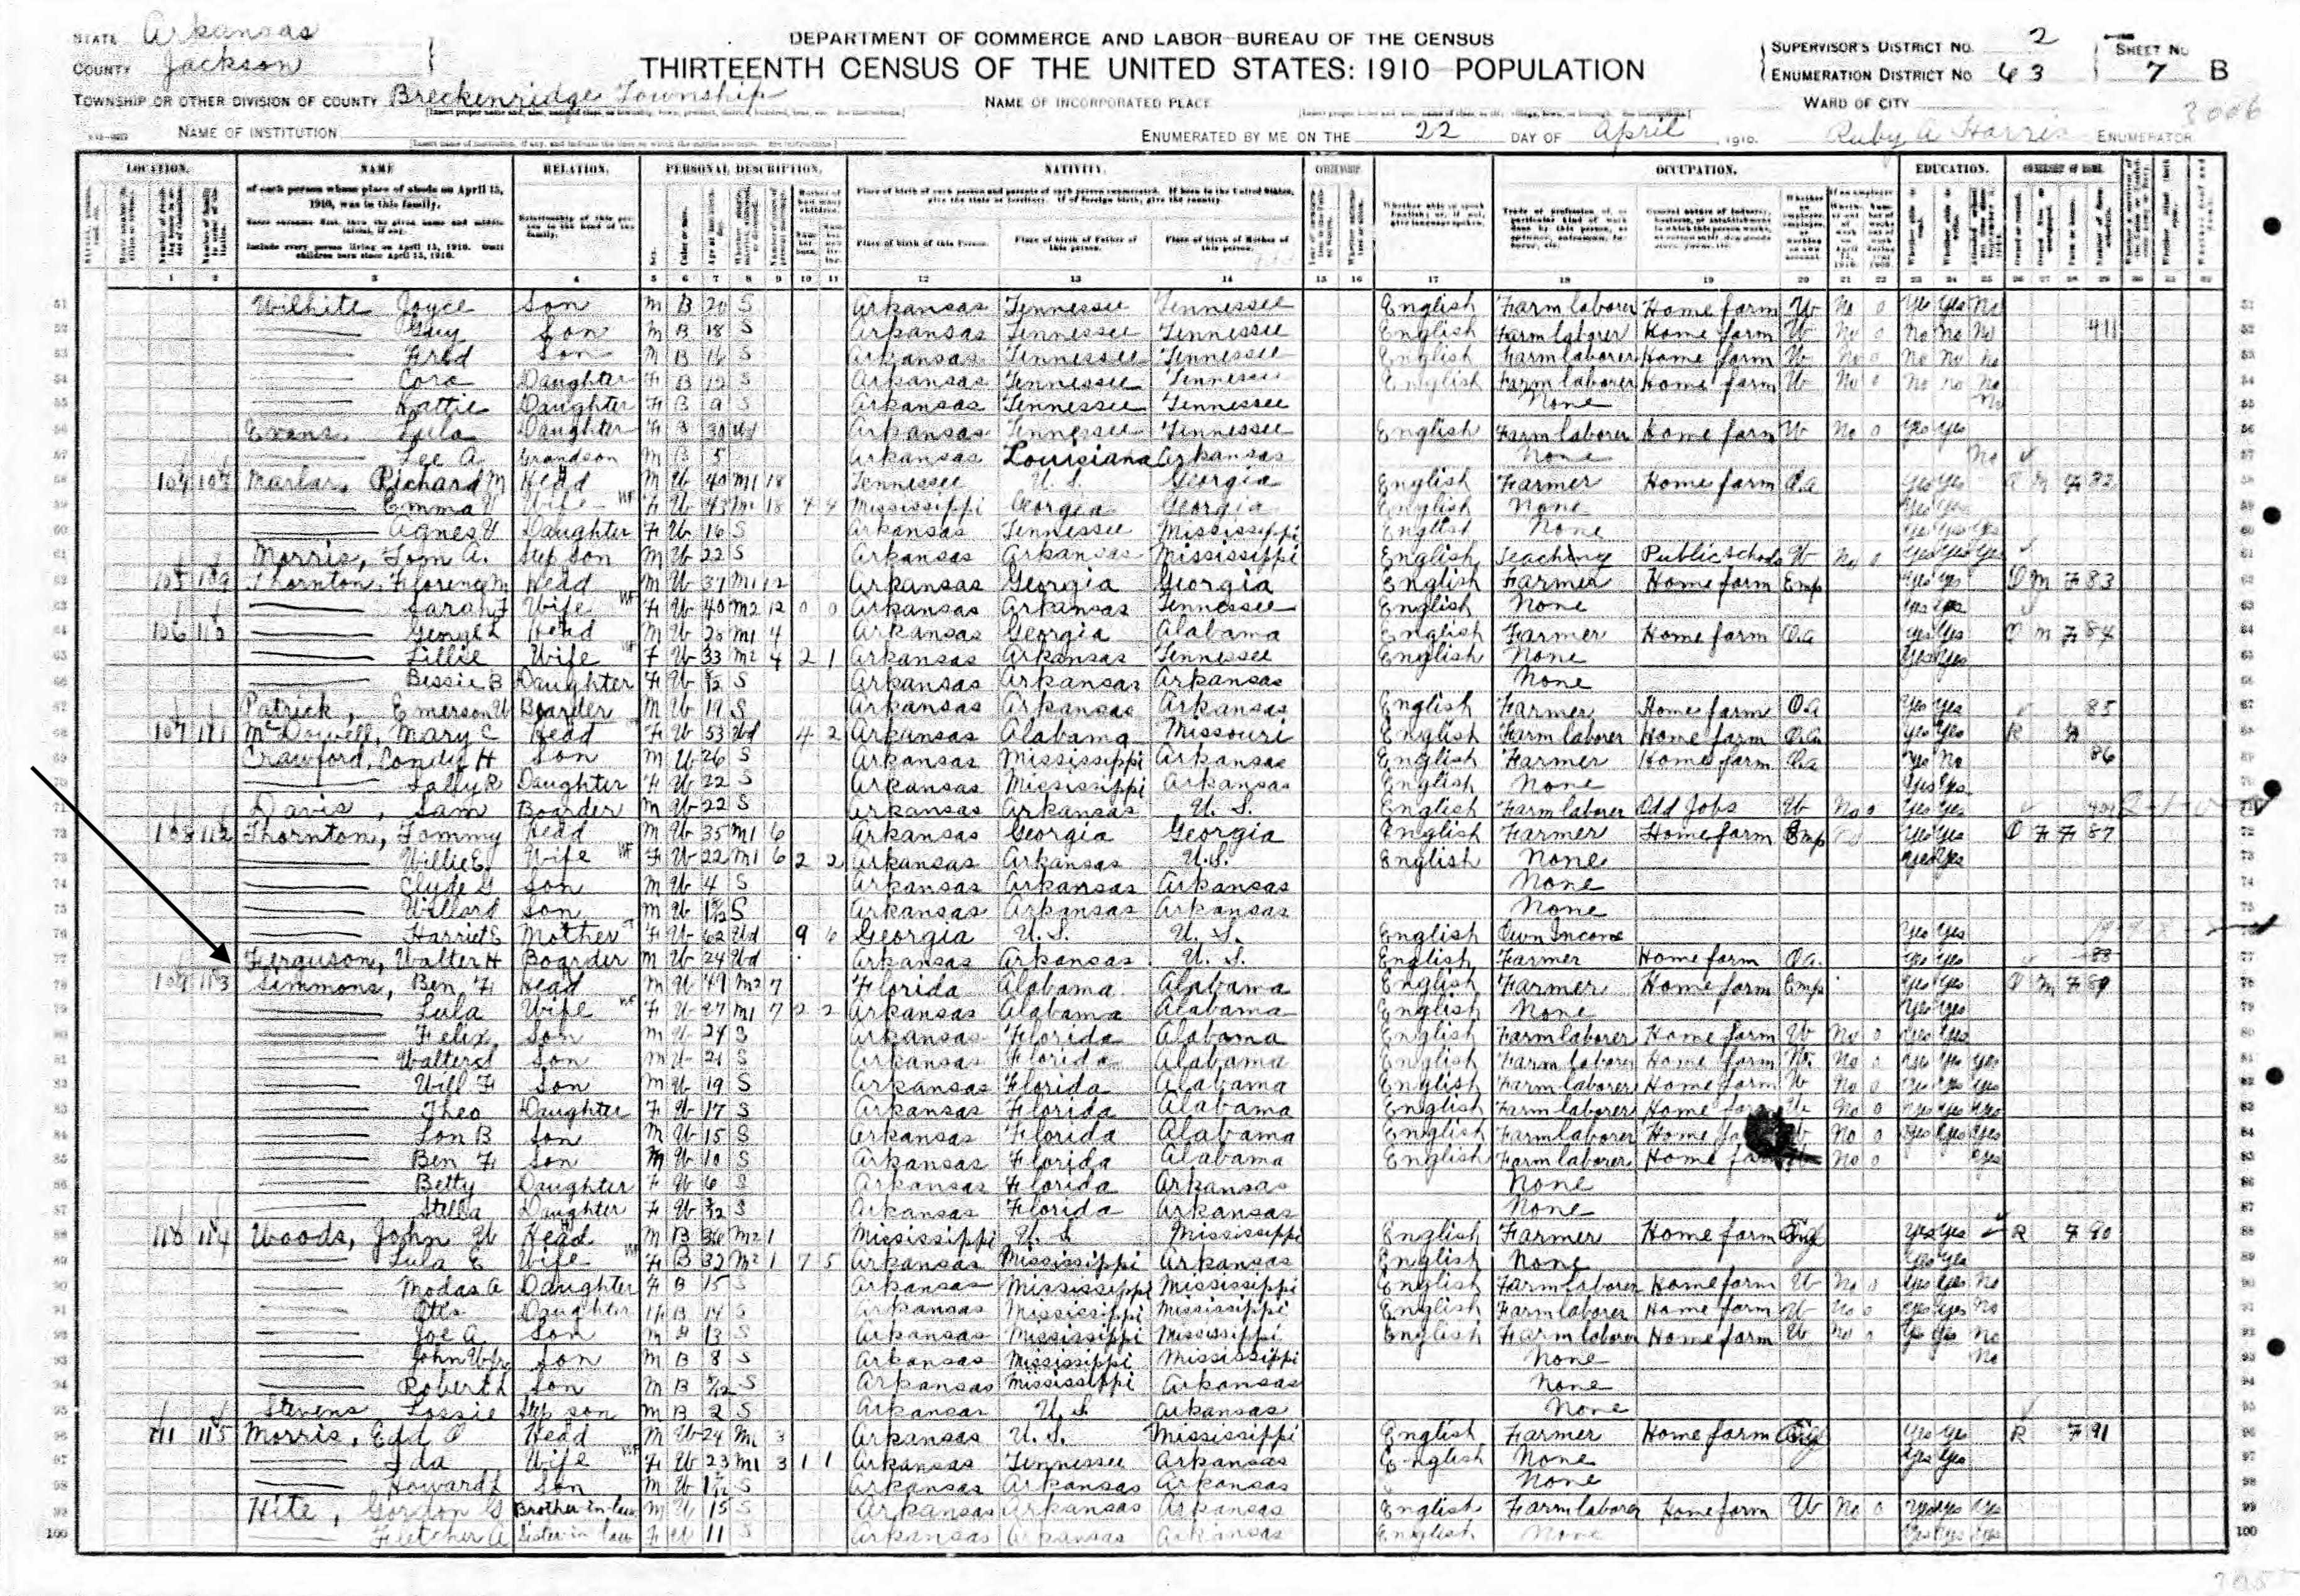 STATE Arkansas
COUNTY Jackson
TOWNSHIP OR OTHER DIVISION OF COUNTY Breckenridge Township
NAME OF INSTITUTION
DEPARTMENT OF COMMERCE AND LABOR-BUREAU OF THE CENSUS
THIRTEENTH CENSUS OF THE UNITED STATES: 1910-POPULATION
NAME OF INCORPORATED PLACE
ENUMERATED BY ME ON THE 22 DAY OF April, 1910.
SUPERVISOR'S DISTRICT NO. 2
ENUMERATION DISTRICT NO 43
SHEET NO 7 B
WARD OF CITY
3006
Ruby A Harris ENUMERATOR
LOCATION. NAME RELATION. PERSONAL DESCRIPTION. NATIVITY. CITIZENSHIP OCCUPATION. EDUCATION. OWNERSHIP OF HOME.
of each person whose place of abode on April 15, 1910, was in this family.
Include every person living on April 15, 1910. Omit children born since April 15, 1910.
Place of birth of this Person. Place of birth of Father of this person. Place of birth of Mother of this person.
1 2 3 4 5 6 7 8 9 10 11 12 13 14 15 16 17 18 19 20 21 22 23 24 25 26 27 28 29 30 31 32
51 Wilhite Joyce Son M B 20 S Arkansas Tennessee Tennessee English Farm laborer Home farm W No 0 Yes Yes No
52 Guy Son M B 18 S Arkansas Tennessee Tennessee English Farm laborer Home farm W No 0 No No No 411
53 Fred Son M B 16 S Arkansas Tennessee Tennessee English Farm laborer Home farm W No 0 No No No
54 Cora Daughter F B 12 S Arkansas Tennessee Tennessee English Farm laborer Home farm W No 0 No No No
55 Hattie Daughter F B 9 S Arkansas Tennessee Tennessee None No
56 Evans Lula Daughter F B 30 Wd Arkansas Tennessee Tennessee English Farm laborer Home farm W No 0 Yes Yes
57 Lee A Grandson M B 5 Arkansas Louisiana Arkansas None No
58 107 Marlar, Richard M Head M W 40 M1 18 Tennessee U. S. Georgia English Farmer Home farm O.A Yes Yes O M F 82
59 Emma Wife F W 43 18 4 4 Mississippi Georgia Georgia English None Yes Yes
60 Agnes V Daughter F W 16 S Arkansas Tennessee Mississippi English None Yes Yes Yes
61 Morris, Tom A. Step Son M W 22 S Arkansas Arkansas Mississippi English Teaching Public Schools W No 0 Yes Yes Yes
62 105 109 Thornton, Florence M Head M W 37 M1 12 Arkansas Georgia Georgia English Farmer Home farm Emp Yes Yes O M F 83
63 Sarah F Wife F W 40 M2 12 0 0 Arkansas Arkansas Tennessee English None Yes Yes
64 106 110 George L Head M W 28 M1 4 Arkansas Georgia Alabama English Farmer Home farm O.A Yes Yes O M F 84
65 Lillie Wife F W 33 M2 4 2 1 Arkansas Arkansas Tennessee English None Yes Yes
66 Bessie B Daughter F W S Arkansas Arkansas Arkansas None
67 Patrick, Emerson W Boarder M W 19 S Arkansas Arkansas Arkansas English Farmer Home farm O.A Yes Yes 85
68 107 111 McDowell, Mary C Head F W 53 Wd 4 2 Arkansas Alabama Missouri English Farm laborer Home farm O.A Yes Yes R
69 Crawford, Condy H Son M W 26 S Arkansas Mississippi Arkansas English Farmer Home farm O.A Yes No 86
70 Sally R Daughter F W 22 S Arkansas Mississippi Arkansas English None Yes Yes
71 Davis, Sam Boarder M W 22 S Arkansas Arkansas U. S. English Farm laborer Odd Jobs W No 0 Yes Yes
72 108 112 Thornton, Tommy Head M W 35 M1 6 Arkansas Georgia Georgia English Farmer Home farm Emp Yes Yes O F F 87
73 Willie E. Wife F W 22 M1 6 2 2 Arkansas Arkansas U.S. English None Yes Yes
74 Clyde G Son M W 4 S Arkansas Arkansas Arkansas None
75 Willard Son M W S Arkansas Arkansas Arkansas None
76 Harriet E Mother F W 62 Wd 9 6 Georgia U. S. U. S. English Own Income Yes Yes
77 Ferguson, Walter H Boarder M W 24 Wd Arkansas Arkansas U. S. English Farmer Home farm O.A. Yes Yes 88
78 109 113 Simmons, Ben F Head M W 49 M2 7 Florida Alabama Alabama English Farmer Home farm Emp Yes Yes O M F 89
79 Lula Wife F W 27 M1 7 2 2 Arkansas Alabama Alabama English None Yes Yes
80 Felix Son M W 24 S Arkansas Florida Alabama English Farm laborer Home farm W No 0 Yes Yes
81 Walter Son M W 21 S Arkansas Florida Alabama English Farm laborer Home farm W No 0 Yes Yes Yes
82 Will F Son M W 19 S Arkansas Florida Alabama English Farm laborer Home farm W No 0 Yes Yes Yes
83 Theo Daughter F W 17 S Arkansas Florida Alabama English Farm laborer Home farm W No 0 Yes Yes Yes
84 Lon B Son M W 15 S Arkansas Florida Alabama English Farm laborer Home W No 0 Yes Yes Yes
85 Ben F Son M W 10 S Arkansas Florida Alabama English Farm laborer Home No 0 Yes
86 Betty Daughter F W 6 S Arkansas Florida Arkansas None
87 Stella Daughter F W S Arkansas Florida Arkansas None
88 110 114 Woods, John W Head M B 36 M2 1 Mississippi U. S. Mississippi English Farmer Home farm Yes Yes R F 90
89 Lula E Wife F B 32 M2 1 7 5 Arkansas Mississippi Arkansas English None Yes Yes
90 Modas A Daughter F B 15 S Arkansas Mississippi Mississippi English Farm laborer Home farm W No 0 Yes Yes No
91 Otto Daughter F B 14 S Arkansas Mississippi Mississippi English Farm laborer Home farm W No 0 Yes Yes No
92 Joe A Son M 13 S Arkansas Mississippi Mississippi English Farm laborer Home farm W No 0 Yes Yes No
93 John W Jr Son M B 8 S Arkansas Mississippi Mississippi None No
94 Robert L Son M B S Arkansas Mississippi Arkansas None
95 Stevens Lossie Step son M B 2 S Arkansas U. S. Arkansas None
96 111 115 Morris, Edd O Head M W 24 M1 3 Arkansas U. S. Mississippi English Farmer Home farm Yes Yes R F 91
97 Ida Wife F W 23 M1 3 1 1 Arkansas Tennessee Arkansas English None Yes Yes
98 Howard L Son M W S Arkansas Arkansas Arkansas None
99 Hite, Gordon G Brother-in-law M W 15 S Arkansas Arkansas Arkansas English Farm laborer Home farm W No 0 Yes Yes Yes
100 Fletcher A Sister in law F W 11 S Arkansas Arkansas Arkansas English None Yes Yes Yes